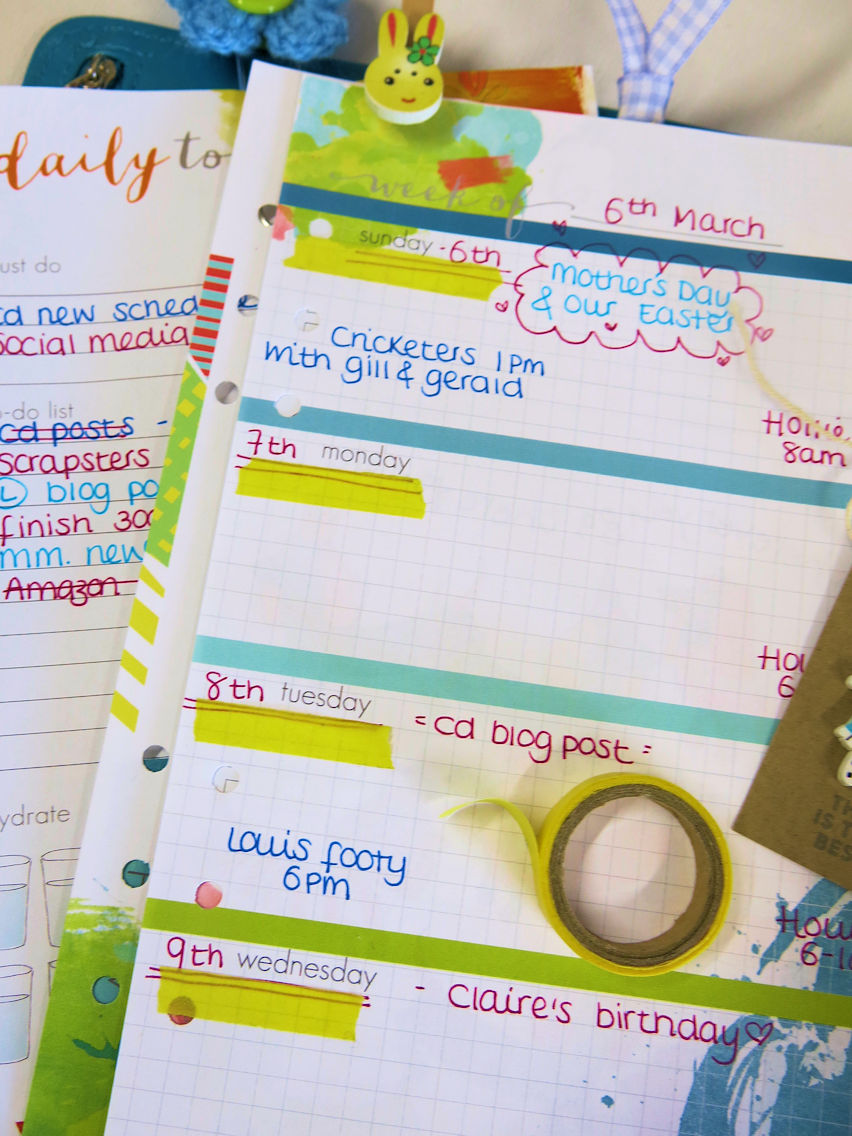 daily to
ust do
cd new sched
social media
o-do list
cd posts -
scrapsters
L blog po
finish 300
mm. new
Amazon
ydrate
week of
6th March
sunday - 6th
Mother's Day
& our Easter
Cricketers 1pm
with gill & gerald
8am
7th monday
6
8th tuesday
= cd blog post =
Louis footy
6pm
6-1
9th wednesday
- Claire's birthday
IS T
BES